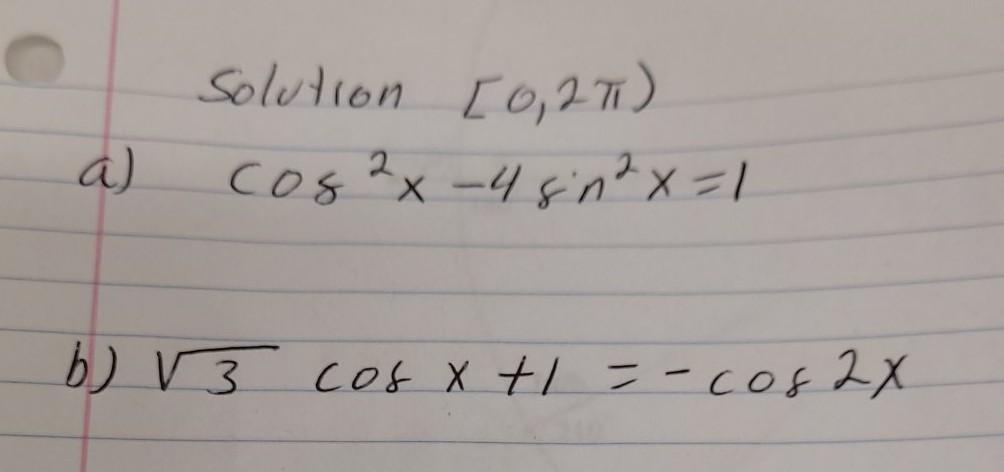 Solution [0,2π)
a) cos²x -4 sin²x=1
b) √3 cos x +1 = -cos 2x